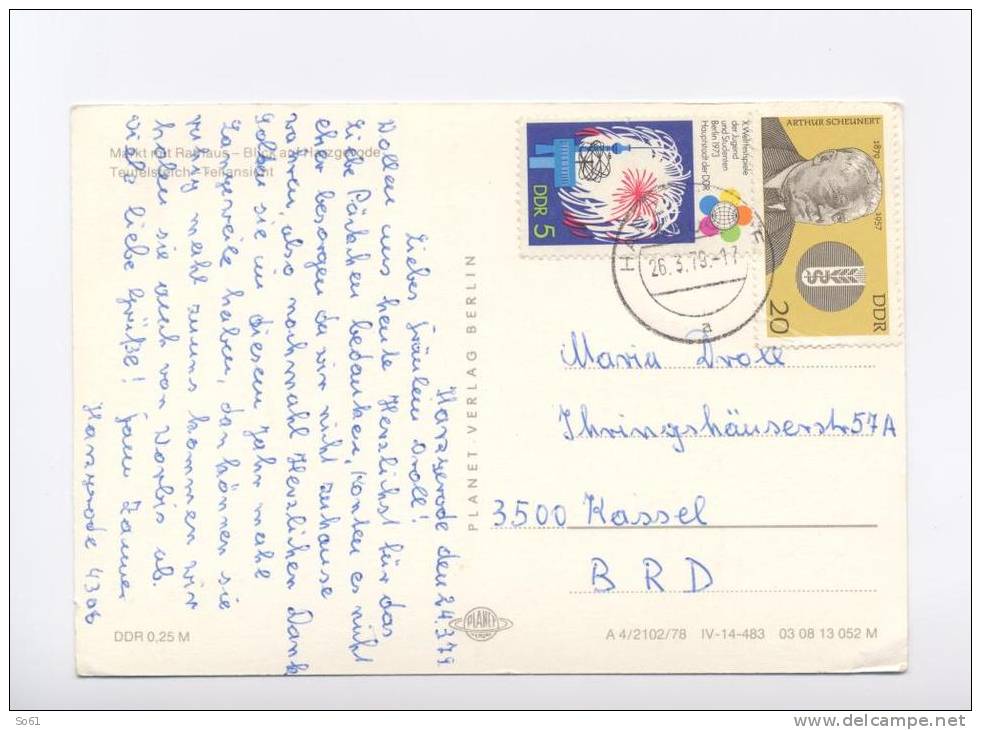 Markt mit Rathaus – Blick auf Harzgerode
Teufelsteich - Teilansicht
Harzgerode den 24.3.79
Liebes Fräulein Droll!
Wollen uns heute Herzlichst für das
Liebe Päckchen bedanken, Konten es nicht
eher besorgen da wir nicht zuhause
waren, also nochmahl Herzlichen Dank
Sollten sie in diesem Jahr mahl
Langeweile haben, dan können sie
ruhig mahl zu uns kommen wir
holen sie auch von Worbis ab.
Viele liebe Grüße! Fam
Harzgerode 4306
DDR 0,25 M
PLANET-VERLAG BERLIN
PLANET
VERLAG
X. Weltfestspiele
der Jugend
und Studenten
Berlin 1973
Hauptstadt der DDR
DDR 5
ARTHUR SCHEUNERT
1879 1957
DDR
20
26.3.79.-17
Maria Droll
Ihringshäuserstr 57A
3500 Kassel
BRD
A 4/2102/78 IV-14-483 03 08 13 052 M
So61
www.delcampe.net